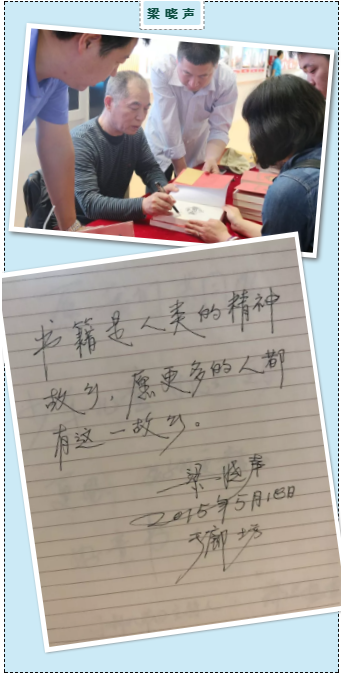 梁晓声
书籍是人类的精神
故乡，愿更多的人都
有这一故乡。
梁晓声
2015年5月18日
于廊坊